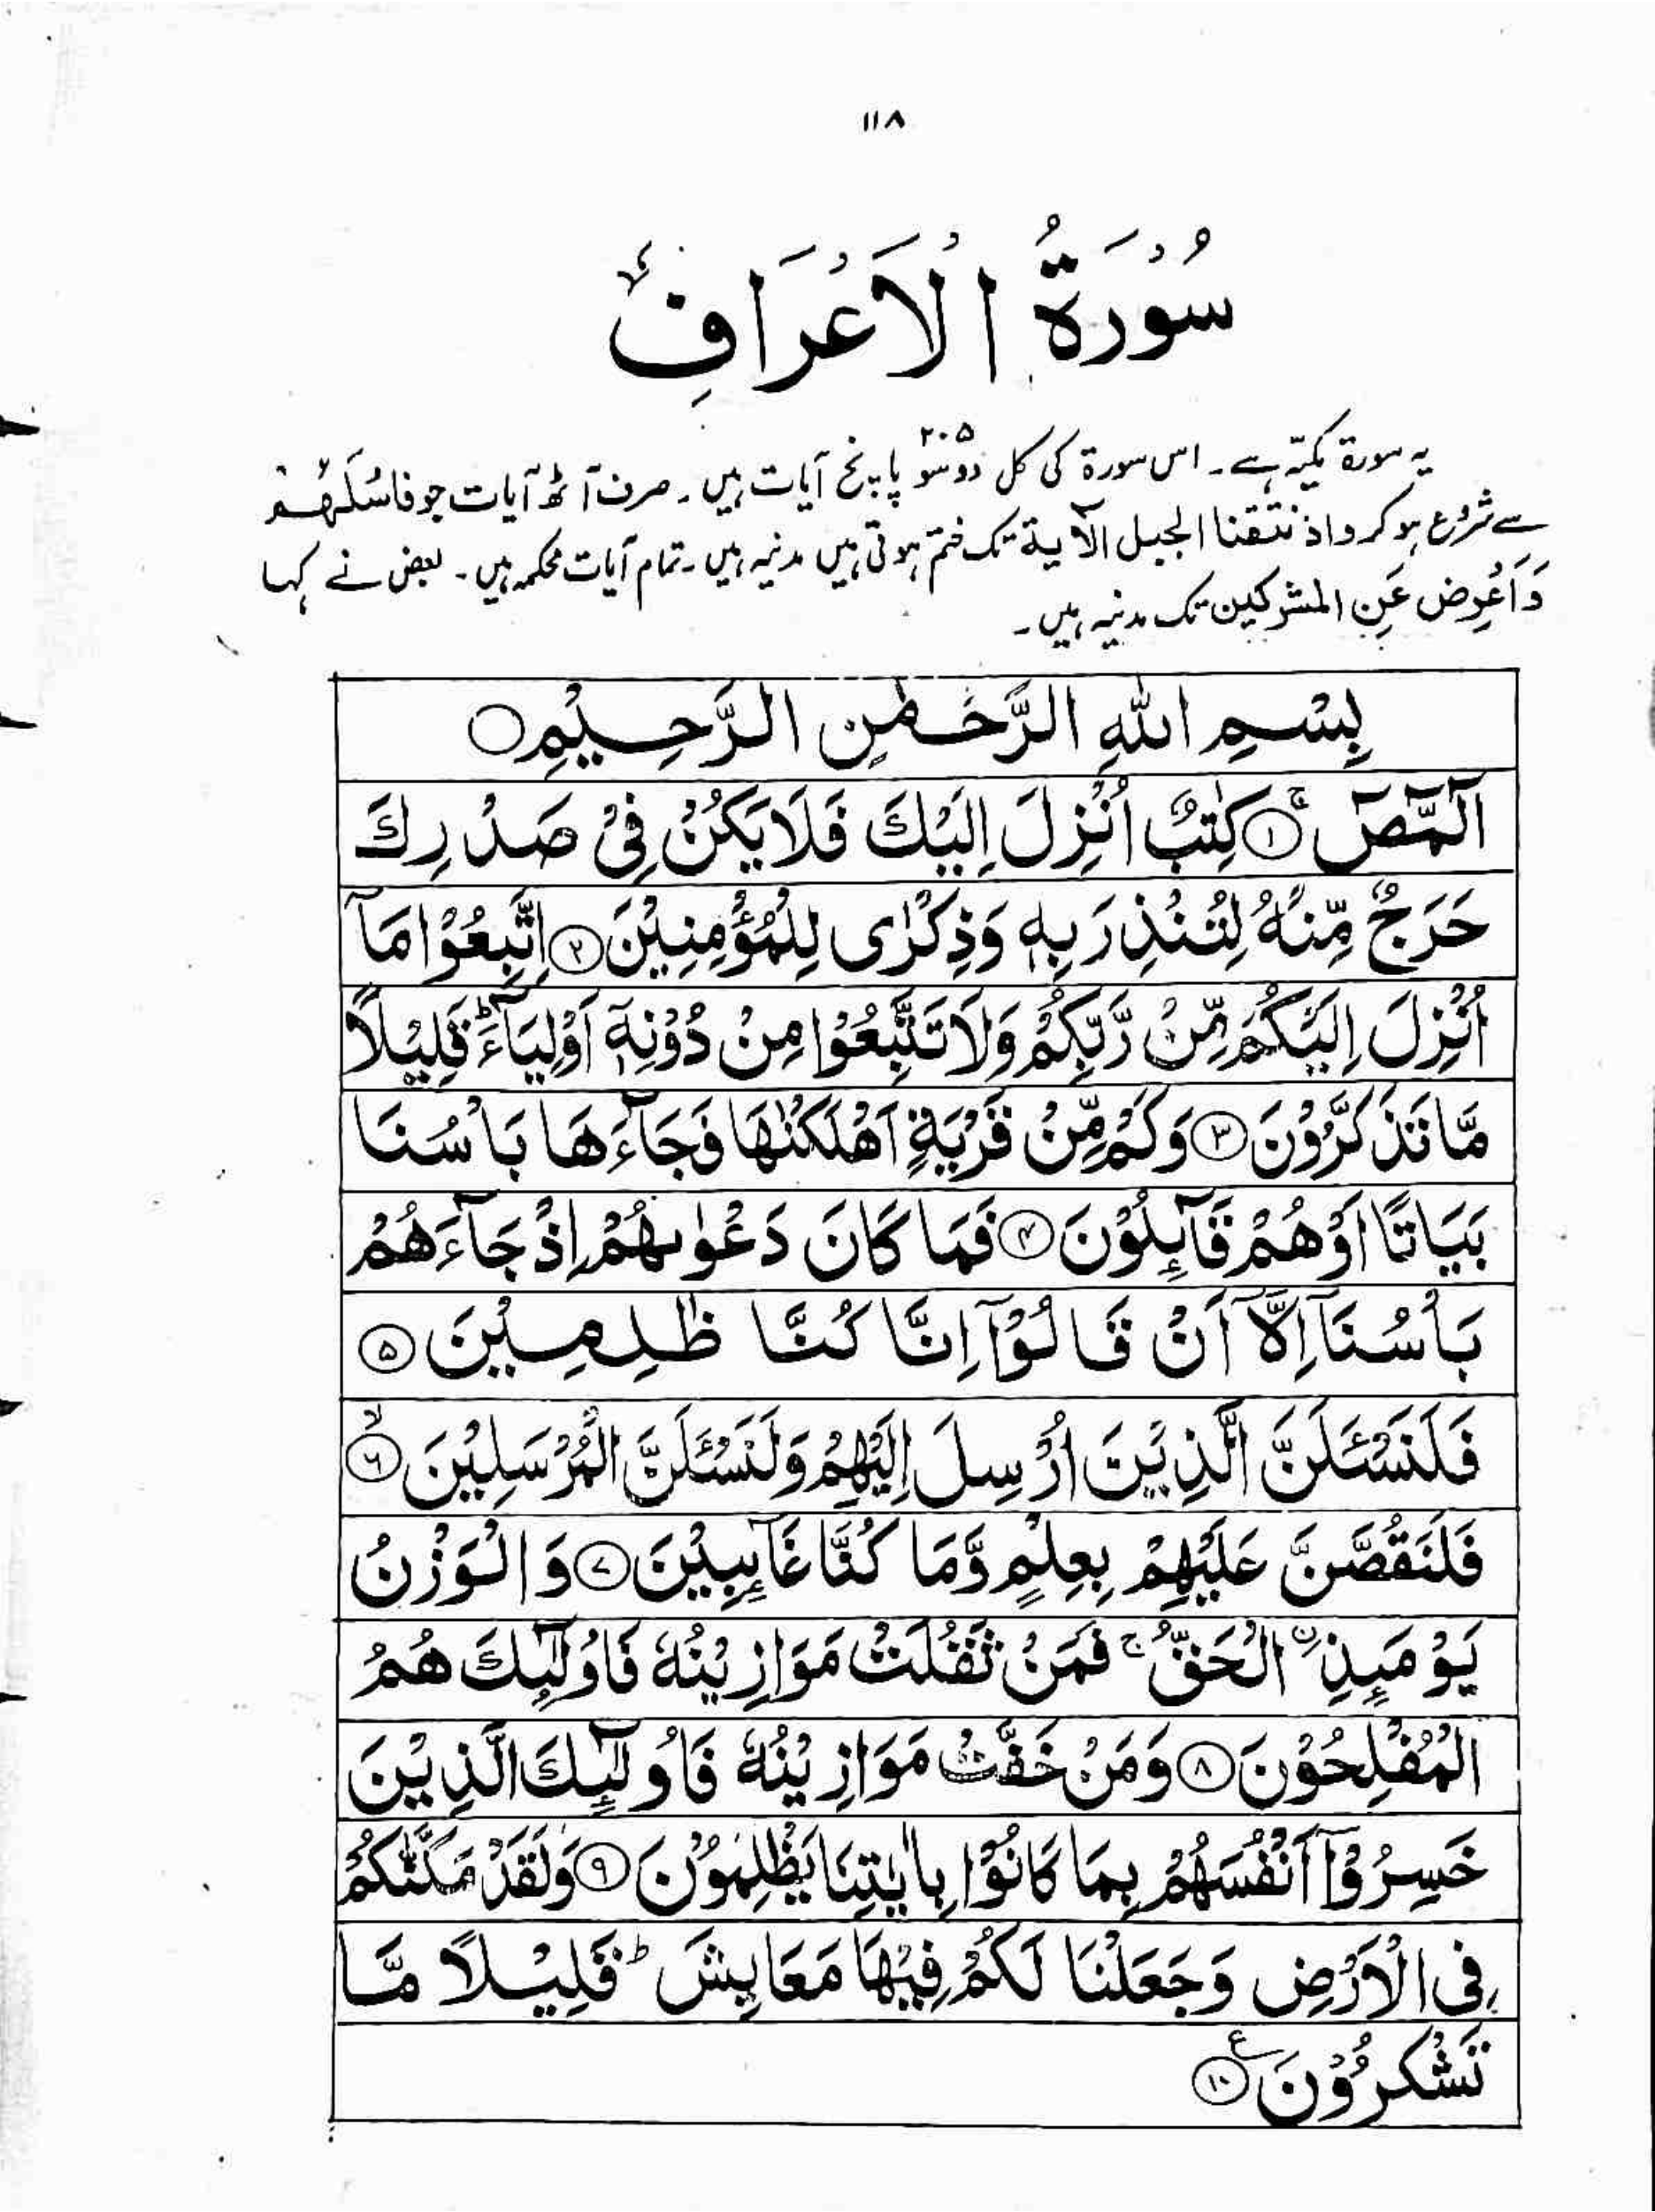 ۱۱۸
سُوْرَةُ الْاَعْرَافِ
۲۰۵
یہ سورۃ مکیّہ ہے۔ اس سورۃ کی کل دوسو پانچ آیات ہیں۔ صرف آٹھ آیات جو فاسْئَلْھُمْ
سے شروع ہوکر واذ نتقنا الجبل الآیۃ تک ختم ہوتی ہیں مدنیہ ہیں۔ تمام آیات محکمہ ہیں۔ بعض نے کہا
وَاَعْرِضْ عَنِ المشرکین تک مدنیہ ہیں۔
بِسْمِ اللّٰهِ الرَّحْمٰنِ الرَّحِيْمِ
الٓمّٓصٓ ۚ ۱ كِتٰبٌ اُنْزِلَ اِلَيْكَ فَلَا يَكُنْ فِيْ صَدْرِكَ
حَرَجٌ مِّنْهُ لِتُنْذِرَ بِهٖ وَذِكْرٰى لِلْمُؤْمِنِيْنَ ۲ اِتَّبِعُوْا مَآ
اُنْزِلَ اِلَيْكُمْ مِّنْ رَّبِّكُمْ وَلَا تَتَّبِعُوْا مِنْ دُوْنِهٖٓ اَوْلِيَآءَ ؕ قَلِيْلًا
مَّا تَذَكَّرُوْنَ ۳ وَكَمْ مِّنْ قَرْيَةٍ اَهْلَكْنٰهَا فَجَآءَهَا بَاْسُنَا
بَيَاتًا اَوْ هُمْ قَآئِلُوْنَ ۴ فَمَا كَانَ دَعْوٰىهُمْ اِذْ جَآءَهُمْ
بَاْسُنَآ اِلَّآ اَنْ قَالُوْٓا اِنَّا كُنَّا ظٰلِمِيْنَ ۵
فَلَنَسْـَٔلَنَّ الَّذِيْنَ اُرْسِلَ اِلَيْهِمْ وَلَنَسْـَٔلَنَّ الْمُرْسَلِيْنَ ۙ ۶
فَلَنَقُصَّنَّ عَلَيْهِمْ بِعِلْمٍ وَّمَا كُنَّا غَآئِبِيْنَ ۷ وَالْوَزْنُ
يَوْمَئِذِ ۨ الْحَقُّ ۚ فَمَنْ ثَقُلَتْ مَوَازِيْنُهٗ فَاُولٰٓئِكَ هُمُ
الْمُفْلِحُوْنَ ۸ وَمَنْ خَفَّتْ مَوَازِيْنُهٗ فَاُولٰٓئِكَ الَّذِيْنَ
خَسِرُوْٓا اَنْفُسَهُمْ بِمَا كَانُوْا بِاٰيٰتِنَا يَظْلِمُوْنَ ۹ وَلَقَدْ مَكَّنّٰكُمْ
فِى الْاَرْضِ وَجَعَلْنَا لَكُمْ فِيْهَا مَعَايِشَ ؕ قَلِيْلًا مَّا
تَشْكُرُوْنَ ع ۱۰